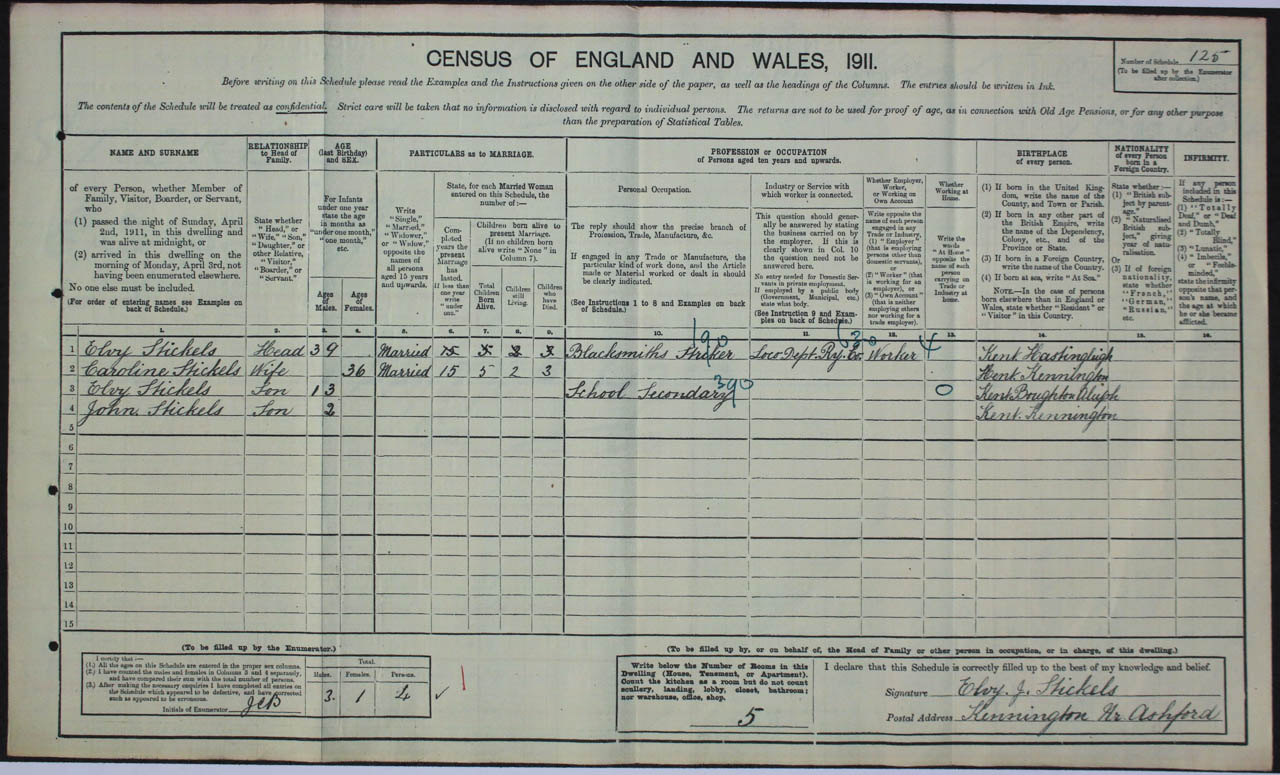 CENSUS OF ENGLAND AND WALES, 1911.
Number of Schedule 125
(To be filled up by the Enumerator after collection.)
Before writing on this Schedule please read the Examples and the Instructions given on the other side of the paper, as well as the headings of the Columns. The entries should be written in Ink.
The contents of the Schedule will be treated as confidential. Strict care will be taken that no information is disclosed with regard to individual persons. The returns are not to be used for proof of age, as in connection with Old Age Pensions, or for any other purpose
than the preparation of Statistical Tables.
NAME AND SURNAME
of every Person, whether Member of
Family, Visitor, Boarder, or Servant,
who
(1) passed the night of Sunday, April
2nd, 1911, in this dwelling and
was alive at midnight, or
(2) arrived in this dwelling on the
morning of Monday, April 3rd, not
having been enumerated elsewhere.
No one else must be included.
(For order of entering names see Examples on
back of Schedule.)
RELATIONSHIP
to Head of
Family.
State whether
"Head," or
"Wife," "Son,"
"Daughter," or
other Relative,
"Visitor,"
"Boarder," or
"Servant."
AGE
(last Birthday)
and SEX.
For Infants
under one year
state the age
in months as
"under one month,"
"one month,"
etc.
Ages of Males.
Ages of Females.
PARTICULARS as to MARRIAGE.
Write
"Single,"
"Married,"
"Widower,"
or "Widow,"
opposite the
names of
all persons
aged 15 years
and upwards.
State, for each Married Woman
entered on this Schedule, the
number of:—
Completed
years the
present
Marriage
has
lasted.
If less than
one year
write
"under
one."
Children born alive to
present Marriage.
(If no children born
alive write "None" in
Column 7).
Total Children Born Alive.
Children still Living.
Children who have Died.
PROFESSION or OCCUPATION
of Persons aged ten years and upwards.
Personal Occupation.
The reply should show the precise branch of
Profession, Trade, Manufacture, &c.
If engaged in any Trade or Manufacture, the
particular kind of work done, and the Article
made or Material worked or dealt in should
be clearly indicated.
(See Instructions 1 to 8 and Examples on back
of Schedule.)
Industry or Service with
which worker is connected.
This question should generally
be answered by stating
the business carried on by
the employer. If this is
clearly shown in Col. 10
the question need not be
answered here.
No entry needed for Domestic Servants
in private employment.
If employed by a public body
(Government, Municipal, etc.)
state what body.
(See Instruction 9 and Examples
on back of Schedule.)
Whether Employer,
Worker,
or Working on
Own Account
Write opposite the
name of each person
engaged in any
Trade or Industry,
(1) "Employer"
(that is employing
persons other than
domestic servants),
or
(2) "Worker" (that
is working for an
employer), or
(3) "Own Account"
(that is neither
employing others
nor working for a
trade employer).
Whether
Working at
Home.
Write the
words
"At Home"
opposite the
name of each
person
carrying on
Trade or
Industry at
home.
BIRTHPLACE
of every person.
(1) If born in the United Kingdom,
write the name of the
County, and Town or Parish.
(2) If born in any other part of
the British Empire, write
the name of the Dependency,
Colony, etc., and of the
Province or State.
(3) If born in a Foreign Country,
write the name of the Country.
(4) If born at sea, write "At Sea."
NOTE.—In the case of persons
born elsewhere than in England or
Wales, state whether "Resident" or
"Visitor" in this Country.
NATIONALITY
of every Person
born in a
Foreign Country.
State whether:—
(1) "British subject
by parentage."
(2) "Naturalised
British subject,"
giving
year of naturalisation.
Or
(3) If of foreign
nationality,
state whether
"French,"
"German,"
"Russian,"
etc.
INFIRMITY.
If any person
included in this
Schedule is:—
(1) "Totally
Deaf," or "Deaf
and Dumb,"
(2) "Totally
Blind,"
(3) "Lunatic,"
(4) "Imbecile,"
or "Feeble-minded,"
state the infirmity
opposite that person's
name, and
the age at which
he or she became
afflicted.
1. 2. 3. 4. 5. 6. 7. 8. 9. 10. 11. 12. 13. 14. 15. 16.
190 4
1 Elvy Stickels Head 39 Married 15 5 2 3 Blacksmiths Striker Loco Dept. Ry. Co. Worker Kent Hastingleigh
2 Caroline Stickels Wife 36 Married 15 5 2 3 Kent Kennington
3 Elvy Stickels Son 13 School Secondary 390 0 Kent Boughton Aluph
4 John Stickels Son 2 Kent. Kennington
5
6
7
8
9
10
11
12
13
14
15
(To be filled up by the Enumerator.)
I certify that:—
(1.) All the ages on this Schedule are entered in the proper sex columns.
(2.) I have counted the males and females in Columns 3 and 4 separately,
and have compared their sum with the total number of persons.
(3.) After making the necessary enquiries I have completed all entries on
the Schedule which appeared to be defective, and have corrected
such as appeared to be erroneous.
Initials of Enumerator
Total.
Males. Females. Persons.
3. 1 4
(To be filled up by, or on behalf of, the Head of Family or other person in occupation, or in charge, of this dwelling.)
Write below the Number of Rooms in this
Dwelling (House, Tenement, or Apartment).
Count the kitchen as a room but do not count
scullery, landing, lobby, closet, bathroom;
nor warehouse, office, shop.
5
I declare that this Schedule is correctly filled up to the best of my knowledge and belief.
Signature Elvy. J. Stickels
Postal Address Kennington Nr. Ashford